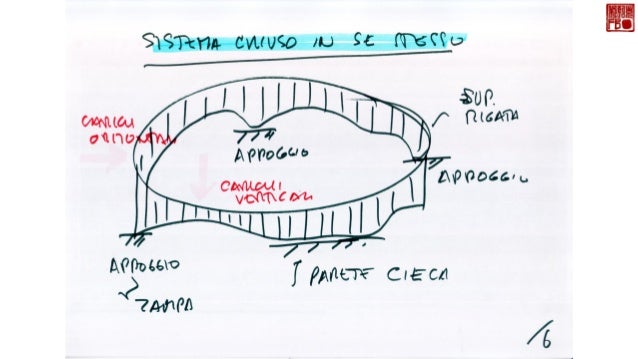 SISTEMA CHIUSO IN SE STESSO
SUP.
RIGATA
CARICHI
ORIZZONTALI
APPOGGIO
APPOGGIO
CARICHI
VERTICALI
APPOGGIO
ZAMPA
PARETE CIECA
/6